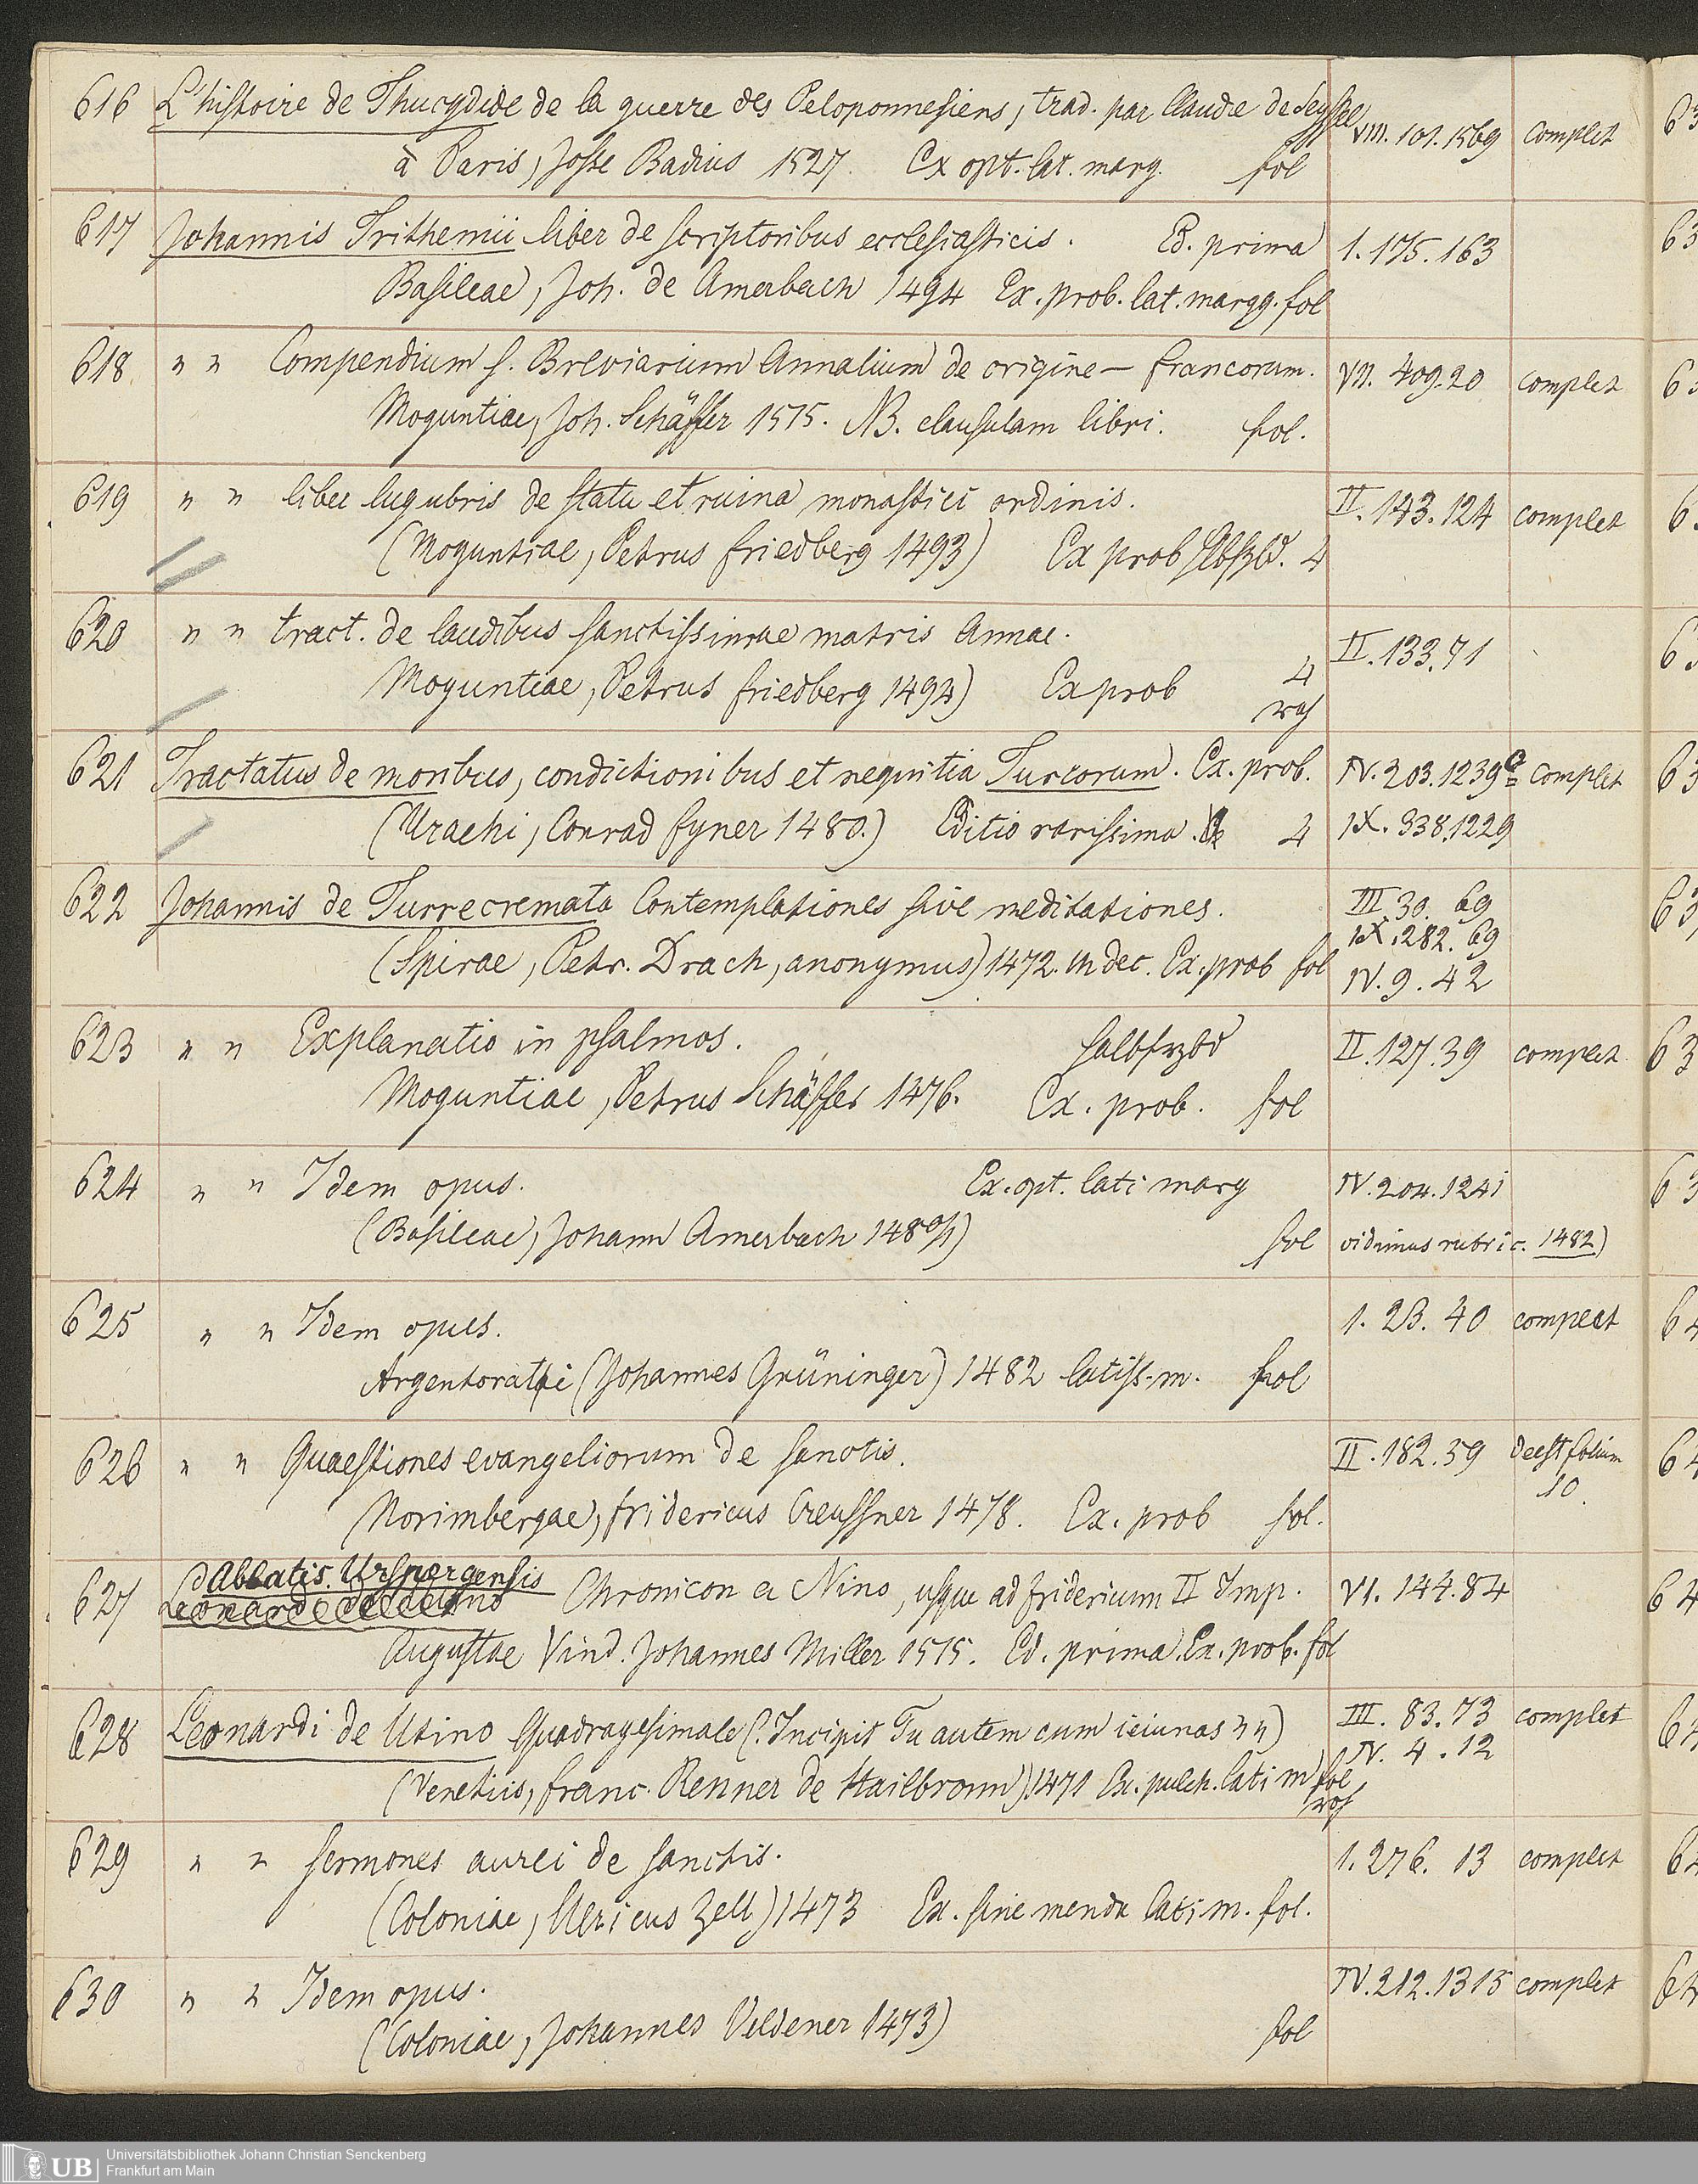 616 L'histoire de Thucydide de la guerre des Peloponnesiens, trad. par Claude de Seyssel VIII. 101. 1569 complet
à Paris, Josse Badius 1527. Ex opt. lat. marg. fol
617 Johannis Trithemii liber de scriptoribus ecclesiasticis. Ed. prima 1. 175. 163
Basileae, Joh. de Amerbach 1494 Ex. prob. lat. margg. fol
618 " " Compendium s. Breviarium Annalium de origine – francorum. VII. 409.20 complet
Moguntiae, Joh. Schäffer 1515. NB. clausulam libri. fol.
619 " " liber lugubris de statu et ruina monastici ordinis. II. 143. 124 complet
(Moguntiae, Petrus friedberg 1493) Ex prob 4
620 " " tract. de laudibus sanctissimae matris Annae. II. 133. 71
Moguntiae, Petrus friedberg 1494) Ex prob 4
621 Tractatus de moribus, condictionibus et nequitia Turcorum. Ex. prob. IV. 203. 1239a complet
(Urachi, Conrad fyner 1480.) Editio rarissima. 4 IX. 338. 1229
622 Johannis de Turrecremata Contemplationes sive meditationes. III. 30. 69
IX. 282. 69
(Spirae, Petr. Drach, anonymus) 1472. in dec. Ex. prob fol IV. 9. 42
623 " " Explanatio in psalmos. Halbfrzbd II. 127. 39 complet
Moguntiae, Petrus Schäffer 1476. Ex. prob. fol
624 " " Idem opus. Ex. opt. lati marg IV. 204. 1241
(Basileae, Johann Amerbach 1480/1) fol vidimus rubric. 1482)
625 " " Idem opus. 1. 23. 40 complet
Argentorati (Johannes Grüninger) 1482 latiss. m. fol
626 " " Quaestiones evangeliorum de sanctis. II. 182. 59 deest folium
10.
Norimbergae, fridericus Creussner 1478. Ex. prob fol.
627 Abbatis Urspergensis Chronicon a Nino, usque ad fridericum II Imp. VI. 144. 84
Augustae Vind. Johannes Miller 1515. Ed. prima. Ex. prob. fol
628 Leonardi de Utino Quadragesimale (: Incipit Tu autem cum ieiunas " ") III. 83. 73 complet
IV. 4. 12
(Venetiis, franc. Renner de Hailbronn) 1471 Ex. pulch. lati m fol
629 " " sermones aurei de sanctis. 1. 276. 13 complet
(Coloniae, Ulricus Zell) 1473 Ex. sine menda lati m. fol.
630 " " Idem opus. IV. 212. 1315 complet
(Coloniae, Johannes Veldener 1473) fol
UB Universitätsbibliothek Johann Christian Senckenberg
Frankfurt am Main